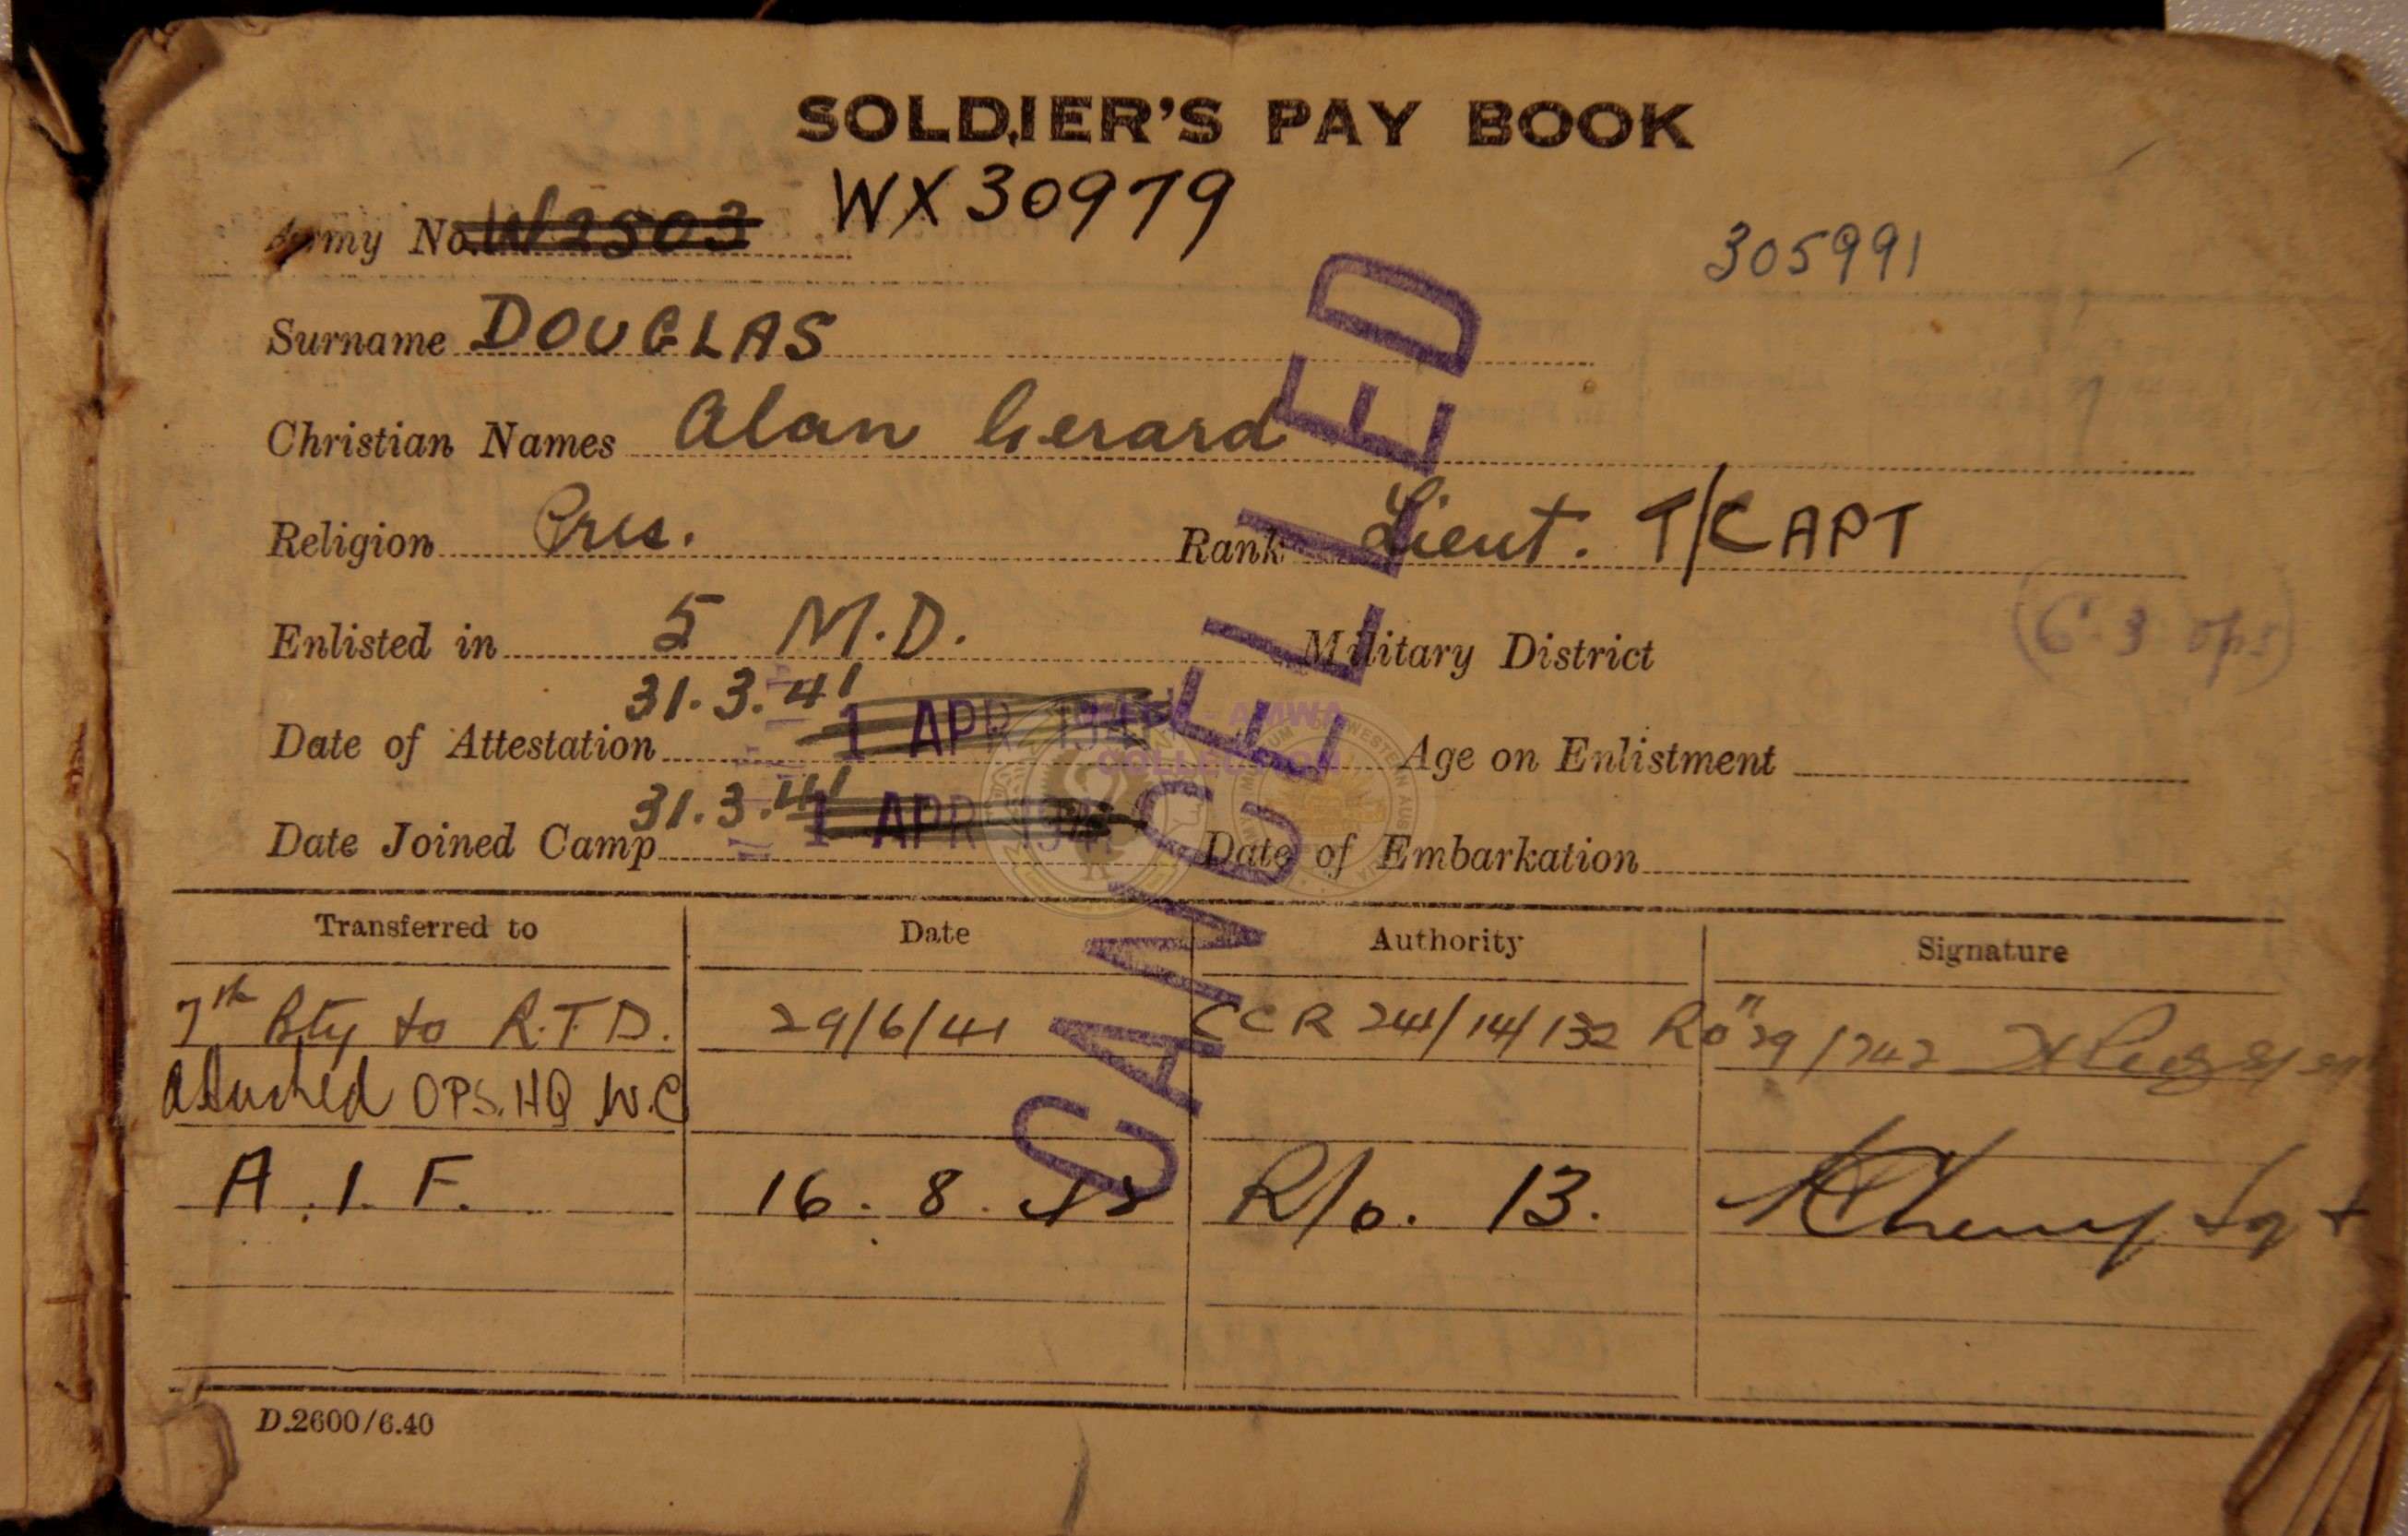 SOLDIER'S PAY BOOK
Army No. W2503 WX30979
305991
Surname DOUGLAS
Christian Names Alan Gerard
Religion Pres. Rank Lieut. T/CAPT
Enlisted in 5 M.D. Military District
(6-3 ops)
31.3.41
Date of Attestation 1 APR 1941 Age on Enlistment
31.3.41
Date Joined Camp 1 APR 1941 Date of Embarkation
CANCELLED
AMWA
COLLECTION
Transferred to Date Authority Signature
7th Bty to R.T.D. 29/6/41 CCR 241/14/132 Ro" 29/742
attached OPS. HQ W.C
A.I.F. 16.8.42 R/o. 13. Sgt
D.2600/6.40